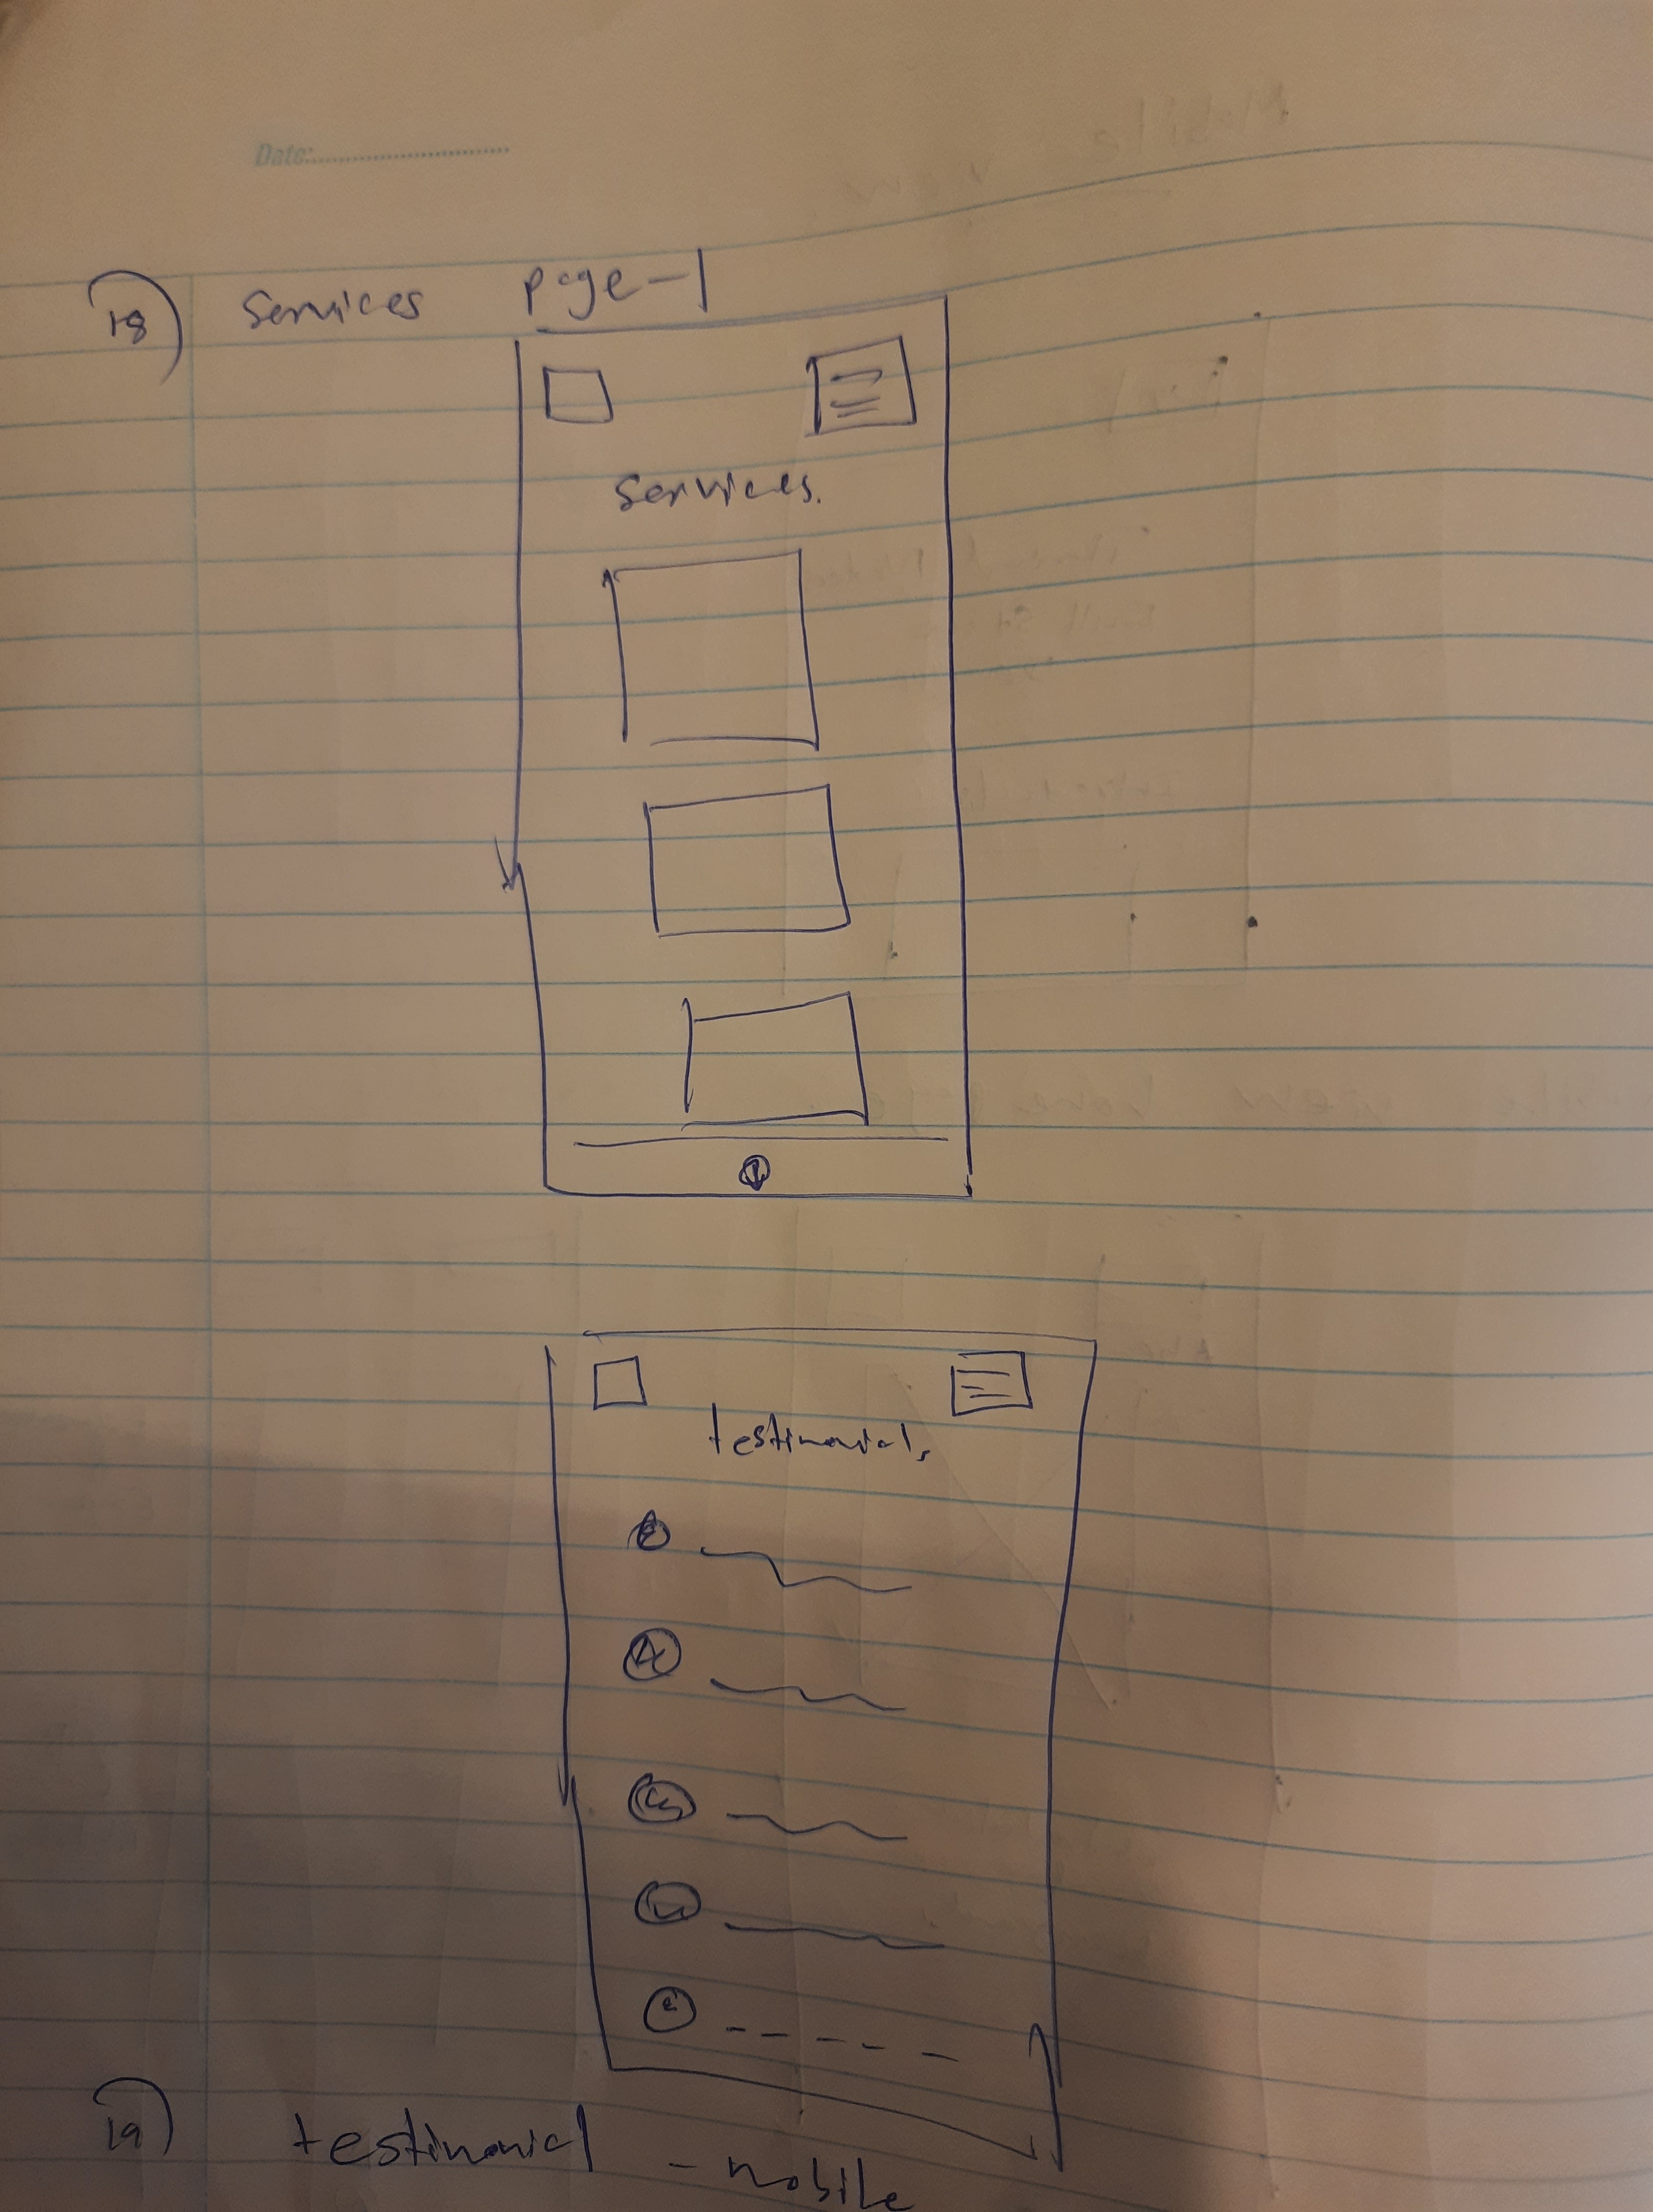 Date:
18) Services page-1
Services.
testimonials
19) testimonial - mobile